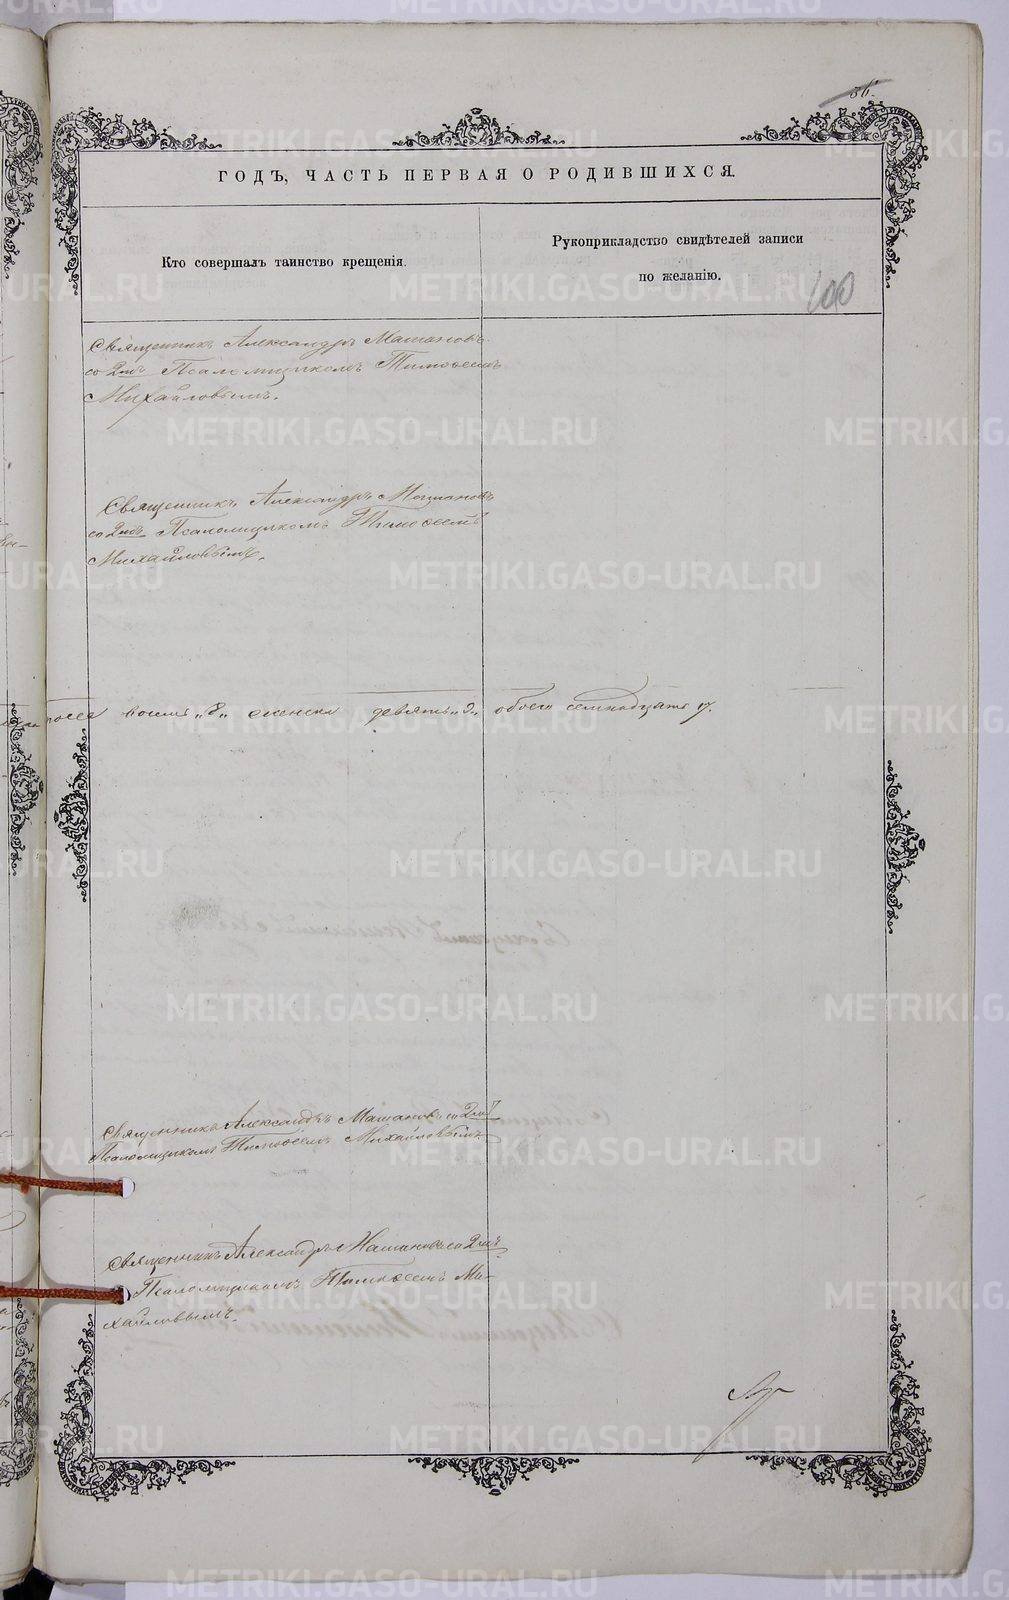 56.
ГОДЪ, ЧАСТЬ ПЕРВАЯ О РОДИВШИХСЯ.
Кто совершалъ таинство крещенія.
Рукоприкладство свидѣтелей записи
по желанію.
100
Священникъ Александръ Машановъ
со 2мъ Псаломщикомъ Тимоѳеемъ
Михайловымъ.
Священникъ Александръ Машановъ
со 2мъ Псаломщикомъ Тимоѳеемъ
Михайловымъ.
восемь „8„ женска девять „9„ обоего семнадцать 17.
Священникъ Александръ Машановъ со 2мъ
Псаломщикомъ Тимоѳеемъ Михайловымъ
Священникъ Александръ Машановъ со 2мъ
Псаломщикомъ Тимоѳеемъ Ми-
хайловымъ.
METRIKI.GASO-URAL.RU